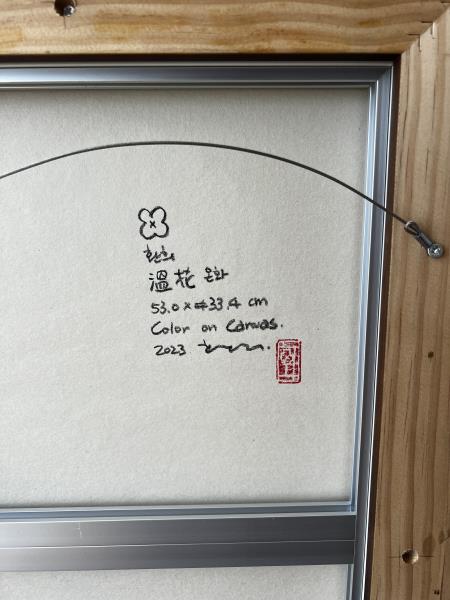 溫花 온화
53.0 × 33.4 cm
Color on Canvas.
2023